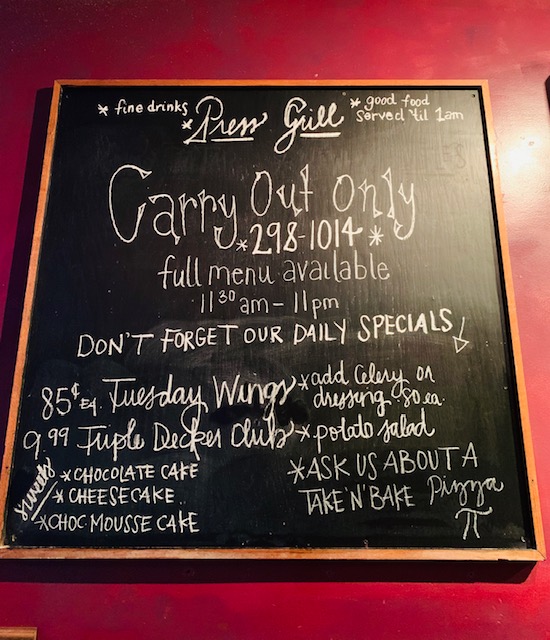 * fine drinks
* Press Grill
* good food
served 'til 1am
Carry Out Only
* 298-1014 *
full menu available
11 30 am - 11 pm
DON'T FORGET OUR DAILY SPECIALS
85¢ EA. Tuesday Wings
* add Celery or
dressing .80 ea.
9.99 Triple Decker Club
* potato salad
Sweets
* CHOCOLATE CAKE
* CHEESECAKE
* CHOC MOUSSE CAKE
* ASK US ABOUT A
TAKE 'N' BAKE Pizza
π